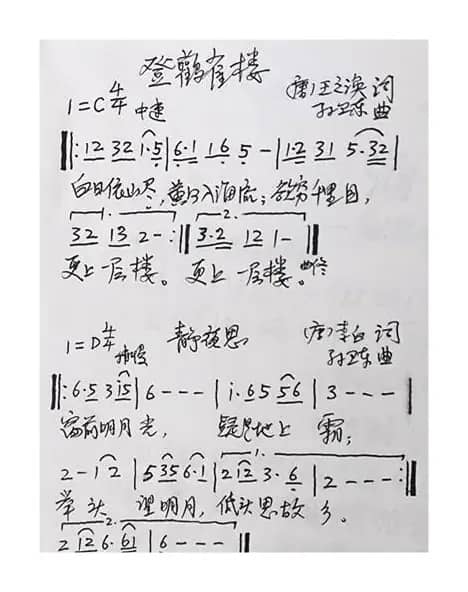 登鹳雀楼
1=C 4/4 中速 (唐)王之涣 词
孙卫东 曲
‖: 12 32 1·5 | 6·1 16 5 - | 1·2 31 5·32 |
白日依山尽,黄河入海流;欲穷千里目,
1. 2.
32 13 2-:‖ 3·2 12 1- ‖
更上一层楼。更上一层楼。曲终
1=D 4/4 稍慢 静夜思 (唐)李白 词
孙卫东 曲
‖: 6·5 3i5 | 6 - - - | i·65 56 | 3 - - - |
窗前明月光, 疑是地上 霜;
1.
2-12 | 535 6·1 | 212 3·6 | 2 - - - :‖
举头 望明月,低头思故 乡。
2.
2 12 6·61 | 6 - - - ‖